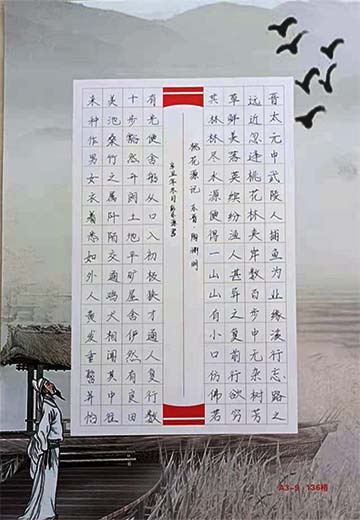 晋太元中武陵人捕鱼为业缘溪行忘路之
远近忽逢桃花林夹岸数百步中无杂树芳
草鲜美落英缤纷渔人甚异之复前行欲穷
其林林尽水源便得一山山有小口仿佛若
桃花源记 东晋·陶渊明
辛丑年冬月
有光便舍船从口入初极狭才通人复行数
十步豁然开朗土地平旷屋舍俨然有良田
美池桑竹之属阡陌交通鸡犬相闻其中往
来种作男女衣着悉如外人黄发垂髫并怡
A3-9 136格